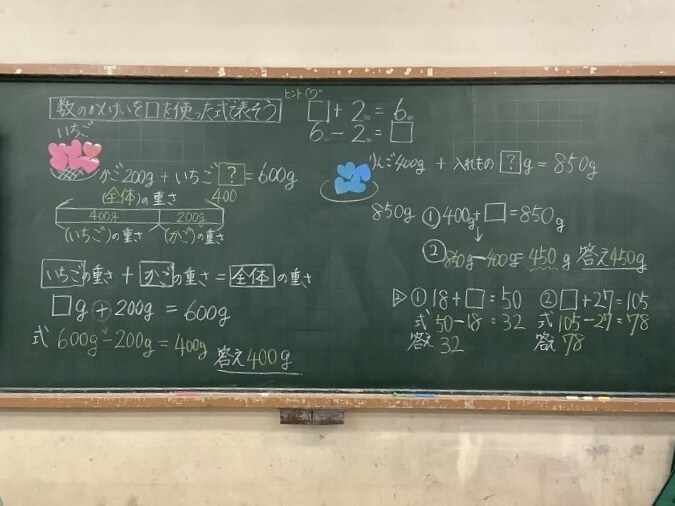 数のかんけいを□を使った式で表そう
いちご
かご200g + いちご ? = 600g
400
(全体)の重さ
400g 200g
(いちご)の重さ (かご)の重さ
いちごの重さ + かごの重さ = 全体の重さ
□g + 200g = 600g
式 600g - 200g = 400g
答え 400g
ヒント
□ + 2 = 6
6 - 2 = □
りんご400g + 入れもの ? g = 850g
850g ① 400g + □ = 850g
② 850g - 400g = 450g 答え450g
① 18 + □ = 50
式 50 - 18 = 32
答え 32
② □ + 27 = 105
式 105 - 27 = 78
答え 78